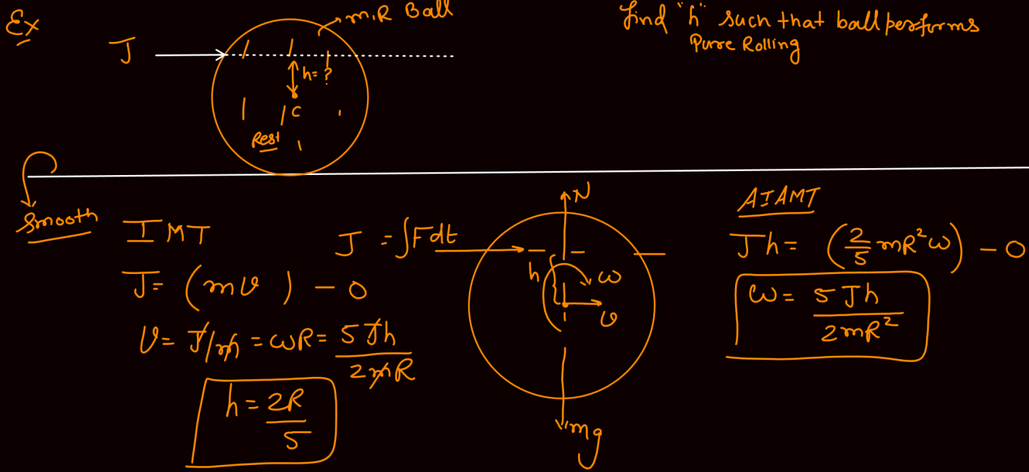 Ex
m,R Ball
find "h" such that ball performs
Pure Rolling
J
h= ?
C
Rest
Smooth
IMT
J = ∫Fdt
J = (mv) - 0
v = J/m = ωR = 5Jh/2mR
h = 2R/5
N
h
ω
v
mg
AIAMT
Jh = (2/5 mR²ω) - 0
ω = 5Jh/2mR²